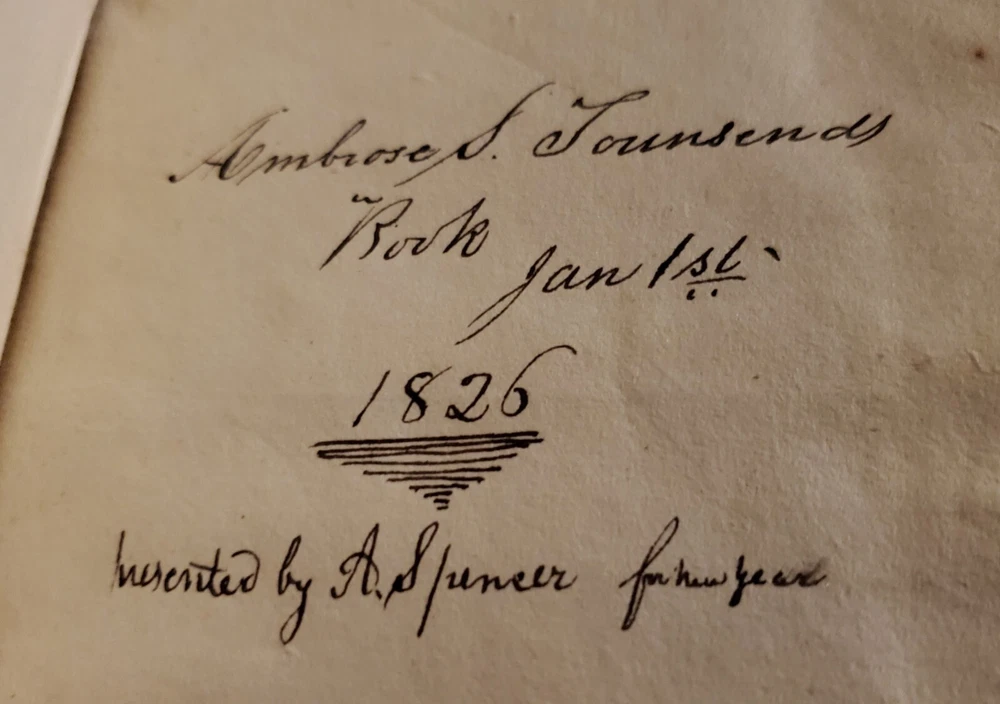 Ambrose S. Townsends
Book
Jan 1st
1826
presented by A. Spencer for new year